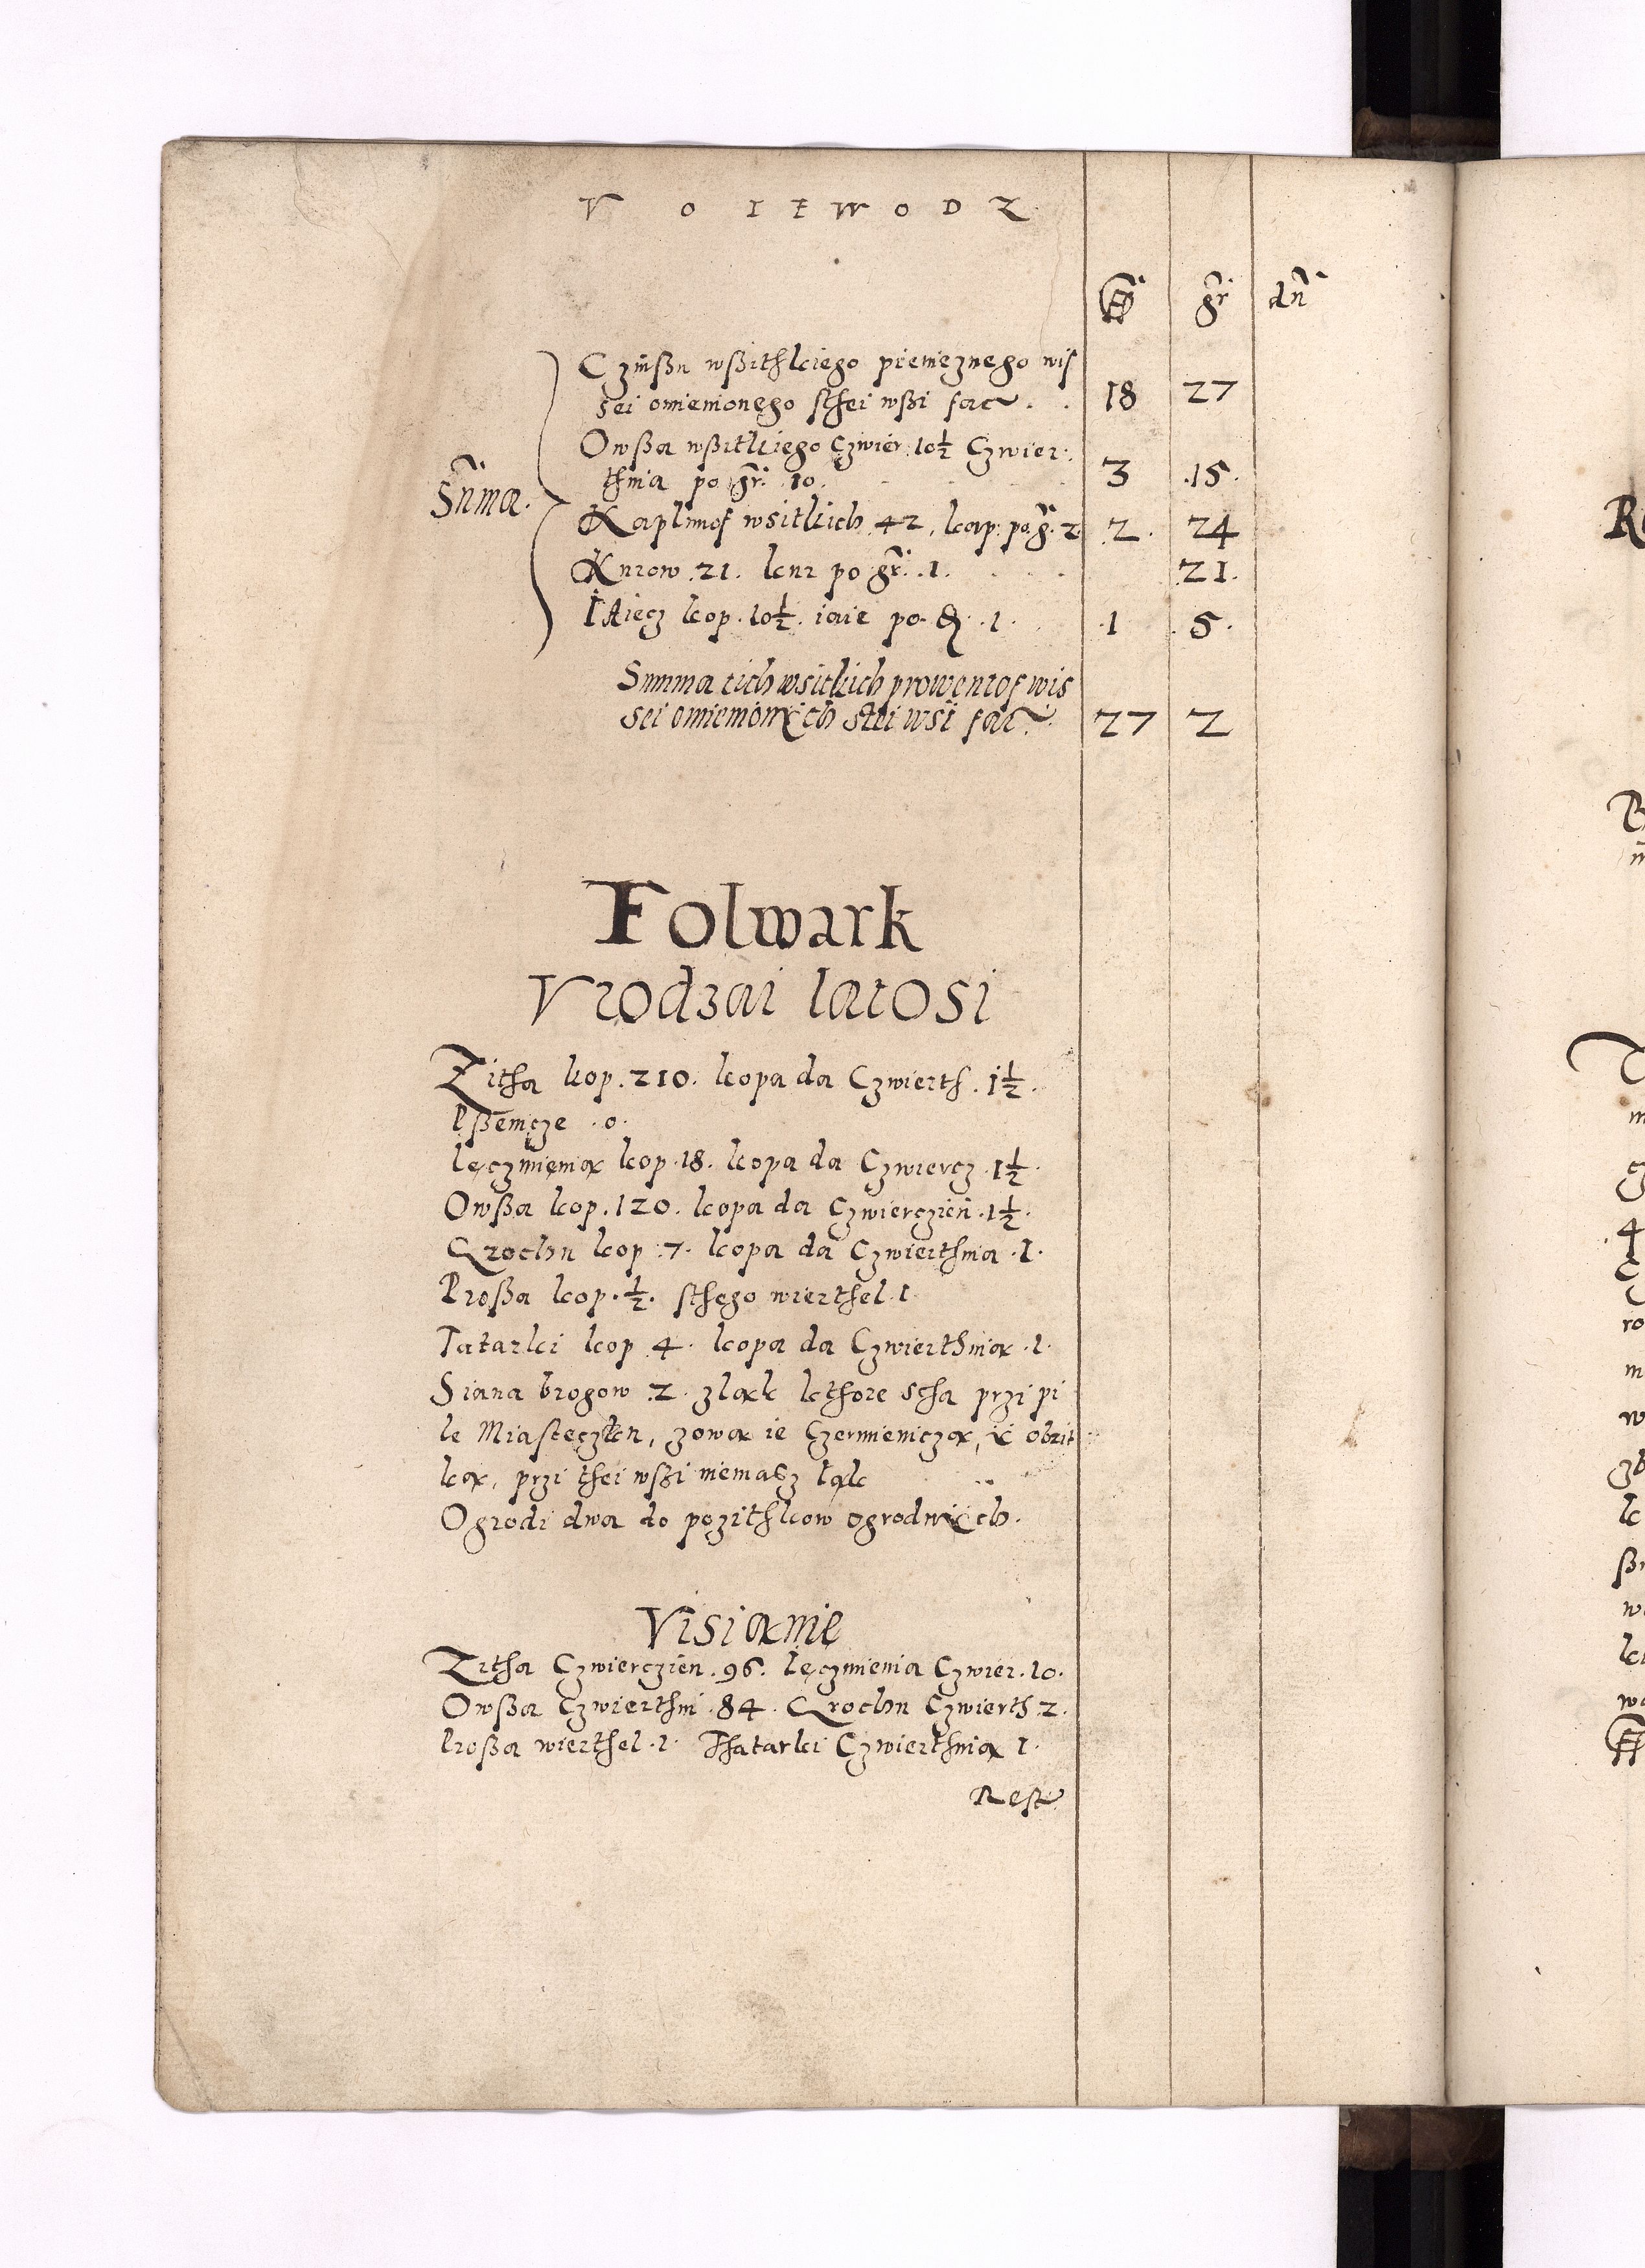 VOIEWODZ
fl gr dn
Czinßu wßithkiego pienięznego wis
sei omienionego sthei wßi fac. 18 27
Owßa wßitkiego Czwier. 10½ Czwier
thnia po gr. 10. 3 .15.
Suma.
Kaplunof wsitkich 42, kap. po g. 2 2. 24
Kurow 21. kur po gr. 1. 21.
IAiecz kop. 10½. iaie po 1. .1 .5.
Summa tich wsitkich prowentof wis
sei omienionych stei wsi fac. 27 2
Folwark
Vrodzai latosi
Zitha kop. 210. kopa da Czwierth. 1½.
Pßenicze .0.
Ięczmienia kop. 18. kopa da Czwiercz. 1½.
Owßa kop. 120. kopa da Czwierczien. 1½.
Grochu kop. 7. kopa da Czwierthnia .1.
Proßa kop. ½. sthego wierthel. 1
Tatarki kop 4. kopa da Czwierthnią .1.
Siana brogow .2. z łąk kthore scha przi pi
le Miasteczku, zową ie Czermieniczą, y obrit
ką, przi thei wßi niemasz łąk
Ogrodi dwa do pozithkow ogrodnych.
Visianie
Zitha Czwierczien. 96. Ięczmienia Czwier. 10.
Owßa Czwierthni .84. Grochu Czwierth 2.
Proßa wierthel .1. Thatarki Czwierthnią 1.
Rest